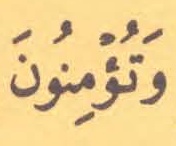 وَتُؤْمِنُونَ